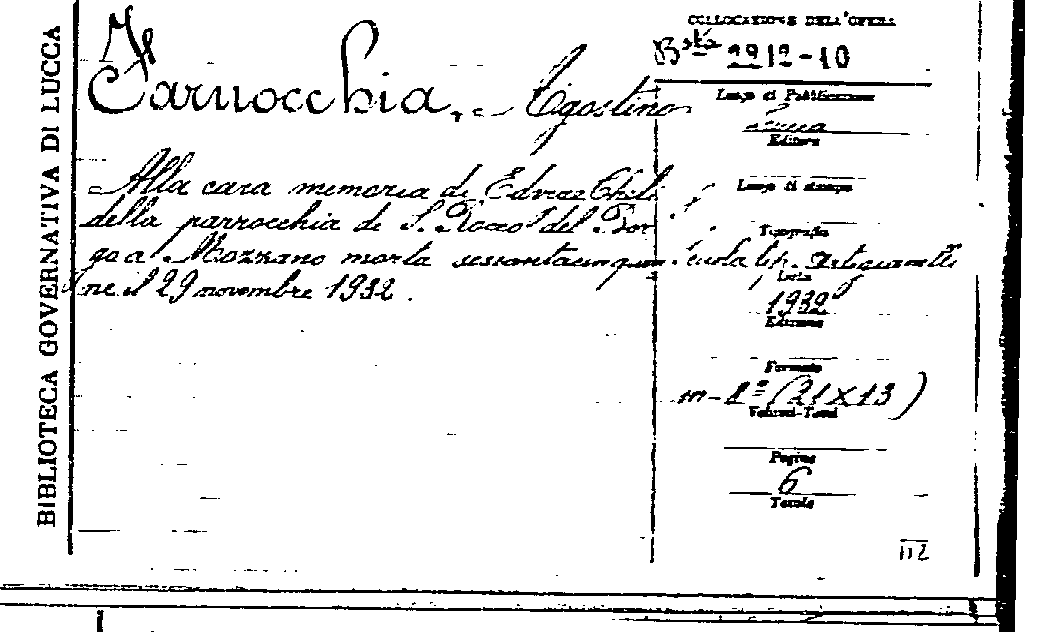 BIBLIOTECA GOVERNATIVA DI LUCCA
COLLOCAZIONE DELL'OPERA
Bsta 2212-10
Farnocchia, Agostino
Luogo di Pubblicazione
Lucca
Editore
Alla cara memoria di Chili
della parrocchia di S. Rocco del Bor
go a Mozzano morta sessantacinquen
ne il 29 novembre 1932.
Luogo di stampa
Tipografia
Scuola tip. Artigianelli
Data
1932
Edizione
Formato
in-8º (21X13)
Volumi-Tomi
Pagine
6
Tavole